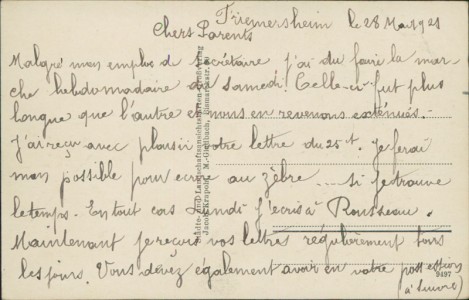 Friemersheim le 28 Mai 1921
Chers Parents
Malgré mon emploi de secrétaire j'ai du faire la mar-
che hebdomadaire du samedi. Celle-ci fut plus
longue que l'autre et nous en revenons exténués.-
J'ai reçu avec plaisir votre lettre du 25 t. Je ferai
mon possible pour ecrire au zèbre ..... si je trouve
le temps. En tout cas Lundi j'ecris à Rousseau.
Maintenant je reçois vos lettres régulièrement tous
les jours. Vous devez également avoir en votre possession
(à suivre)
9497
Städte- und Landschaftsansichten-
Jacob Krapohl, M.-Gladbach,